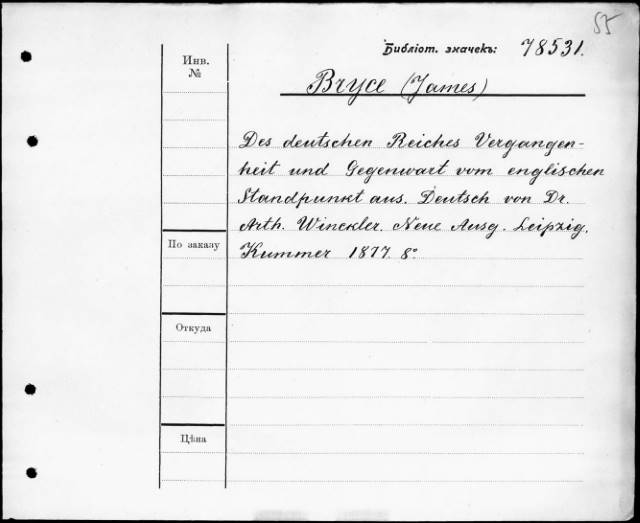 55
Библіот. значекъ: 78531.
Инв.
№
Bryce (James)
Des deutschen Reiches Vergangen-
heit und Gegenwart vom englischen
Standpunkt aus. Deutsch von Dr.
Arth. Winckler. Neue Ausg. Leipzig,
По заказу
Kummer 1877. 8°
Откуда
Цѣна